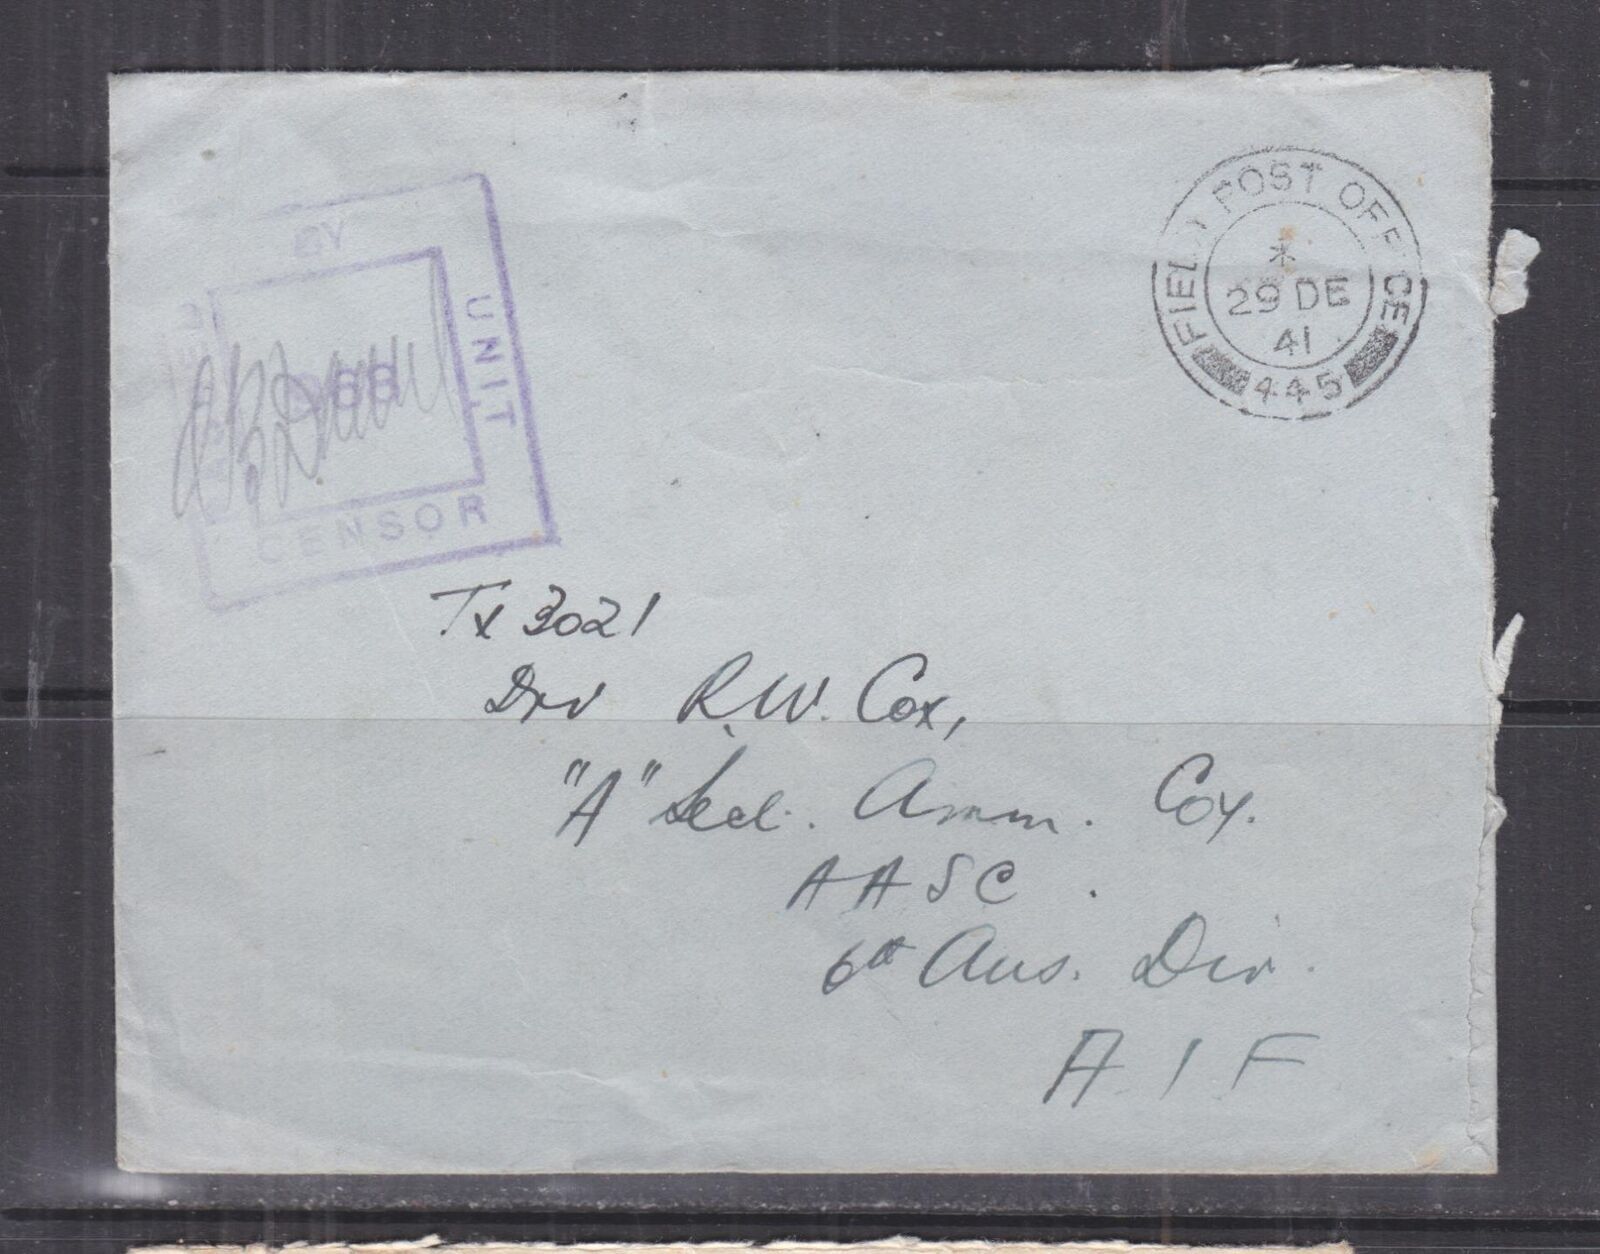 BY
UNIT
CENSOR
FIELD POST OFFICE
29 DE
41
445
Tx 3021
Drv R.W. Cox,
"A" Sec. Amm. Coy.
AASC.
6th Aus. Div.
A I F